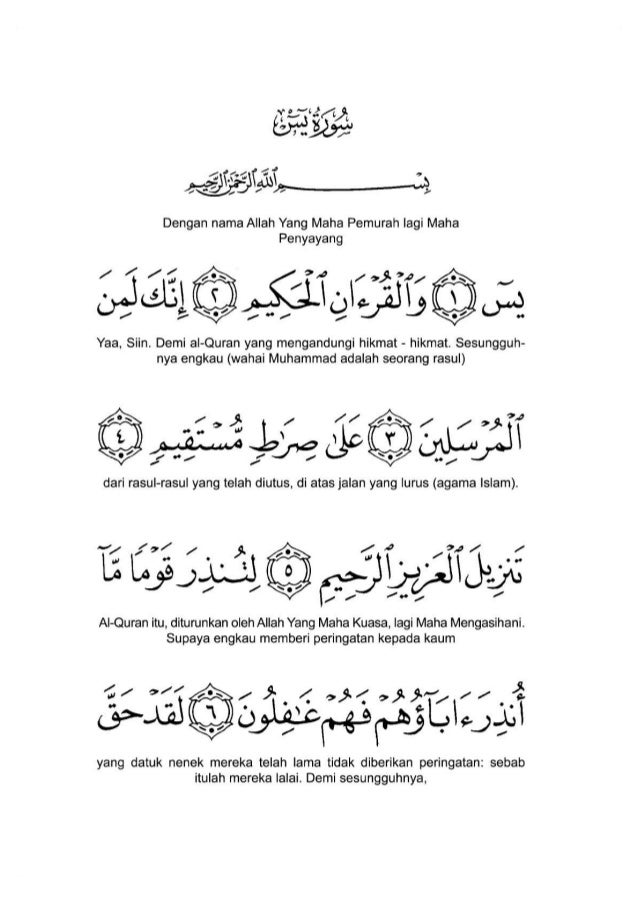 سُورَةُ يسٓ
بِسْمِ ٱللَّهِ ٱلرَّحْمَٰنِ ٱلرَّحِيمِ
Dengan nama Allah Yang Maha Pemurah lagi Maha
Penyayang
يسٓ ١ وَٱلْقُرْءَانِ ٱلْحَكِيمِ ٢ إِنَّكَ لَمِنَ
Yaa, Siin. Demi al-Quran yang mengandungi hikmat - hikmat. Sesungguh-
nya engkau (wahai Muhammad adalah seorang rasul)
ٱلْمُرْسَلِينَ ٣ عَلَىٰ صِرَٰطٍ مُّسْتَقِيمٍ ٤
dari rasul-rasul yang telah diutus, di atas jalan yang lurus (agama Islam).
تَنزِيلَ ٱلْعَزِيزِ ٱلرَّحِيمِ ٥ لِتُنذِرَ قَوْمًا مَّآ
Al-Quran itu, diturunkan oleh Allah Yang Maha Kuasa, lagi Maha Mengasihani.
Supaya engkau memberi peringatan kepada kaum
أُنذِرَ ءَابَآؤُهُمْ فَهُمْ غَٰفِلُونَ ٦ لَقَدْ حَقَّ
yang datuk nenek mereka telah lama tidak diberikan peringatan: sebab
itulah mereka lalai. Demi sesungguhnya,